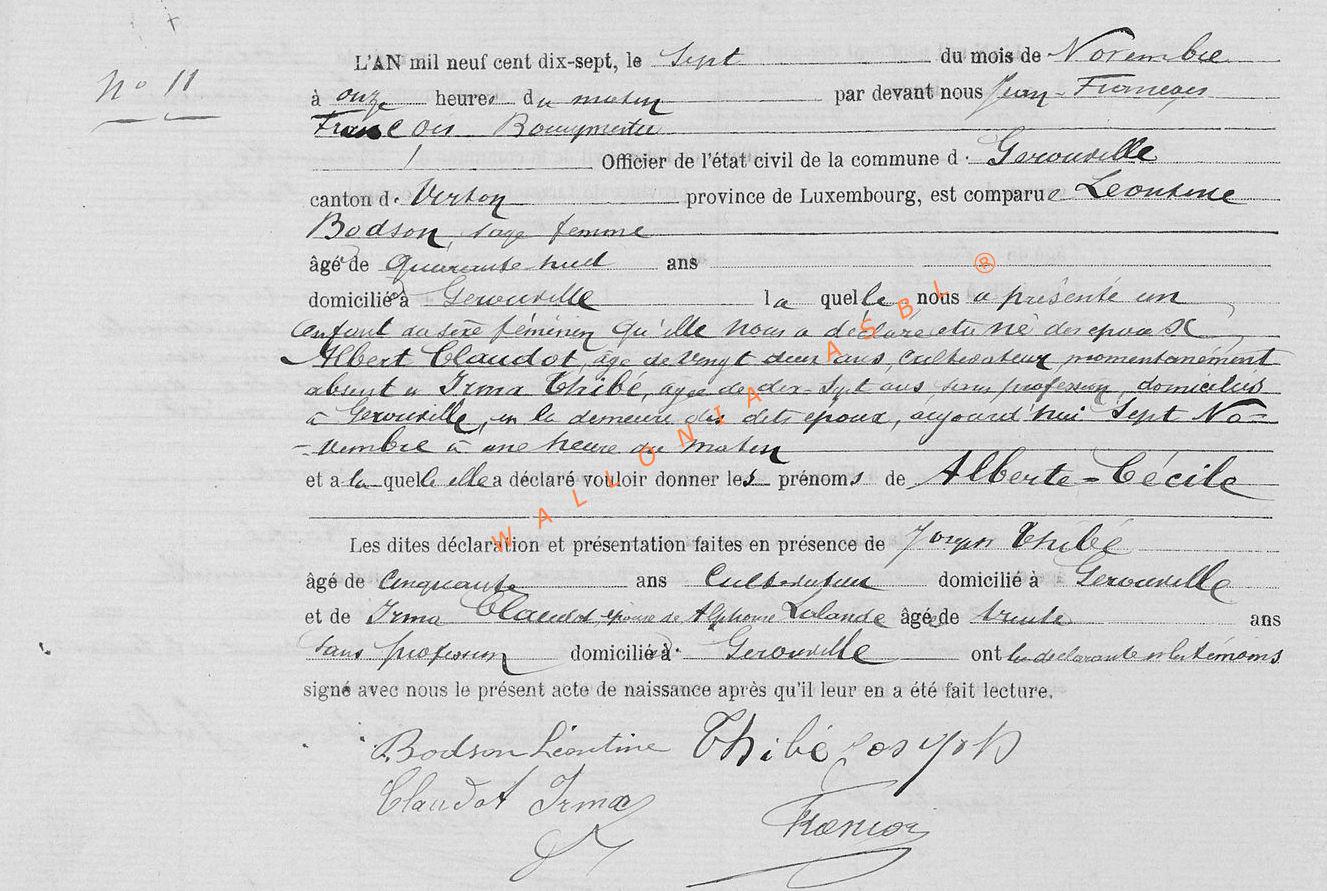 N° 11
L'AN mil neuf cent dix-sept, le Sept du mois de Novembre
à onze heures du matin par devant nous Jean-François
François Bourgmestre
Officier de l'état civil de la commune d. Gerouville
canton d. Virton province de Luxembourg, est comparue Léontine
Bodson, sage femme
âgé de quarante huit ans
domiciliée à Gerouville laquelle nous a présenté un
enfant du sexe féminin qu'elle nous a déclaré etre né des epoux
Albert Claudot, âgé de vingt deux ans, cultivateur, momentanément
absent & Irma Thibé, agée de dix-sept ans, sans profession, domiciliés
à Gerouville, en la demeure des dits epoux, aujourd'hui Sept No=
=vembre à une heure du matin
et a laquelle elle a déclaré vouloir donner les prénoms de Alberte-Cécile
Les dites déclaration et présentation faites en présence de Joseph Thibé
âgé de Cinquante ans Cultivateur domicilié à Gerouville
et de Irma Claudot, epouse de Alphonse Lalande âgée de trente ans
sans profession domiciliée à Gerouville ont la déclarante et les témoins
signé avec nous le présent acte de naissance après qu'il leur en a été fait lecture.
Bodson Léontine Thibé Joseph
Claudot Irma
WALLONIA ASBL ®